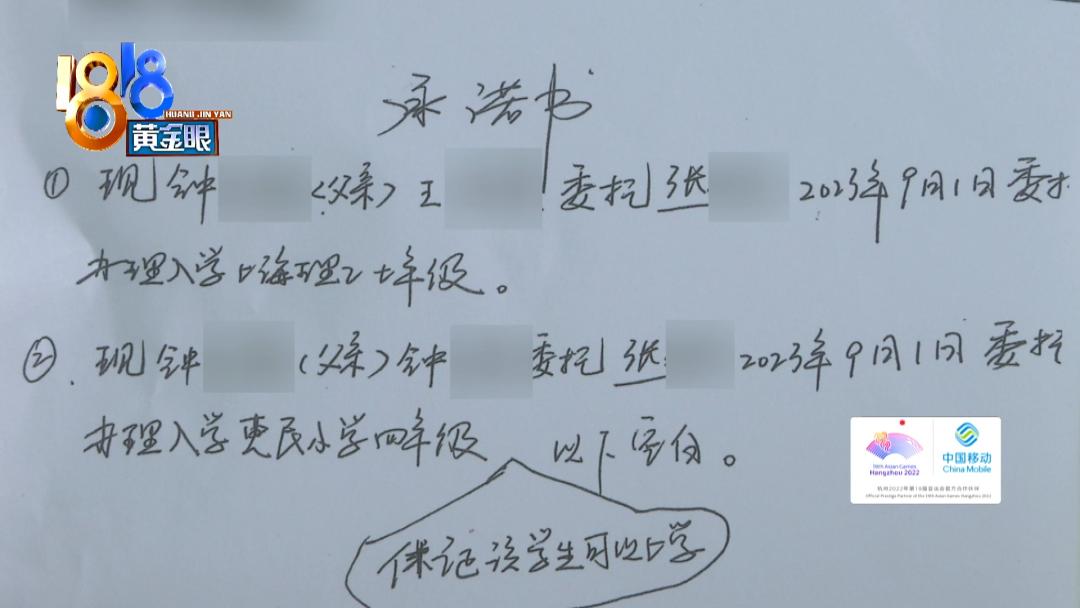 1818
HUANG JIN YAN
黄金眼
承诺书
① 现钟 (父亲)王 委托张 2023年9月1日委托
办理入学上海理工七年级。
②. 现钟 (父亲)钟 委托张 2023年9月1日委托
办理入学惠民小学四年级 以下空白。
保证该学生可以上学
19th Asian Games
Hangzhou 2022
中国移动
China Mobile
杭州2022年第19届亚运会官方合作伙伴
Official Prestige Partner of the 19th Asian Games Hangzhou 2022